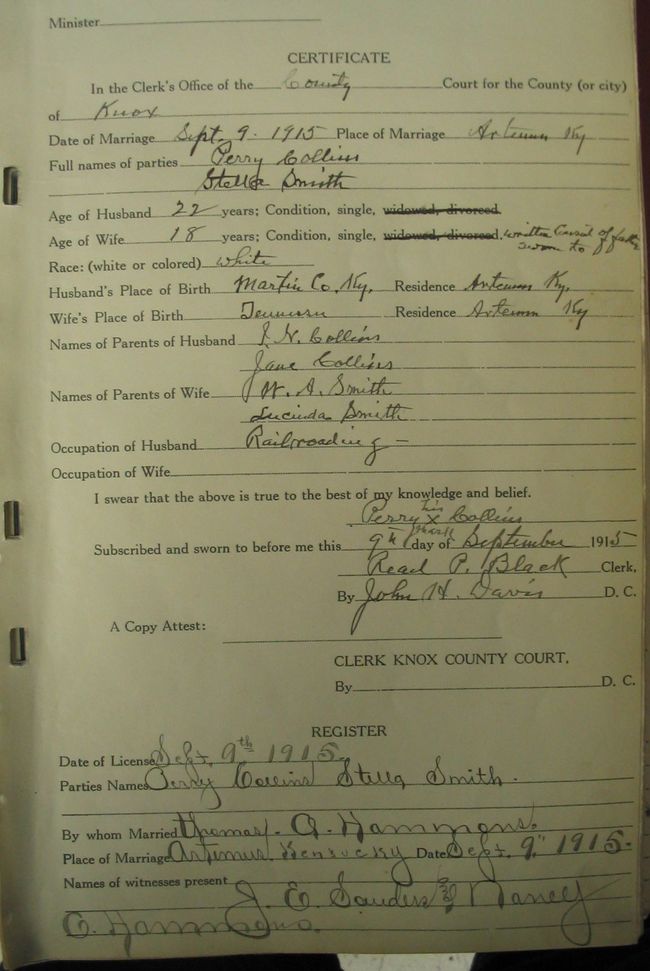 Minister
CERTIFICATE
In the Clerk's Office of the County Court for the County (or city)
of Knox
Date of Marriage Sept. 9 - 1915 Place of Marriage Artemus Ky
Full names of parties Perry Collins
Stella Smith
Age of Husband 22 years; Condition, single, widowed, divorced
Age of Wife 18 years; Condition, single, widowed, divorced. written Consent of
sworn to
Race: (white or colored) white
Husband's Place of Birth Martin Co. Ky. Residence Artemus Ky.
Wife's Place of Birth Residence Artemus Ky
Names of Parents of Husband Collins
Jane Collins
Names of Parents of Wife W. A. Smith
Lucinda Smith
Occupation of Husband Railroading -
Occupation of Wife
I swear that the above is true to the best of my knowledge and belief.
his
Perry X Collins
mark
Subscribed and sworn to before me this 9th day of September 1915
Read P. Black Clerk,
By John H. Davis D. C.
A Copy Attest:
CLERK KNOX COUNTY COURT.
By D. C.
REGISTER
Date of License Sept. 9th 1915.
Parties Names Perry Collins Stella Smith.
By whom Married Thomas. A. Hammons.
Place of Marriage Artimus Kentucky Date Sept. 9" 1915.
Names of witnesses present J. E. Sanders & Nancy
C. Hammons.